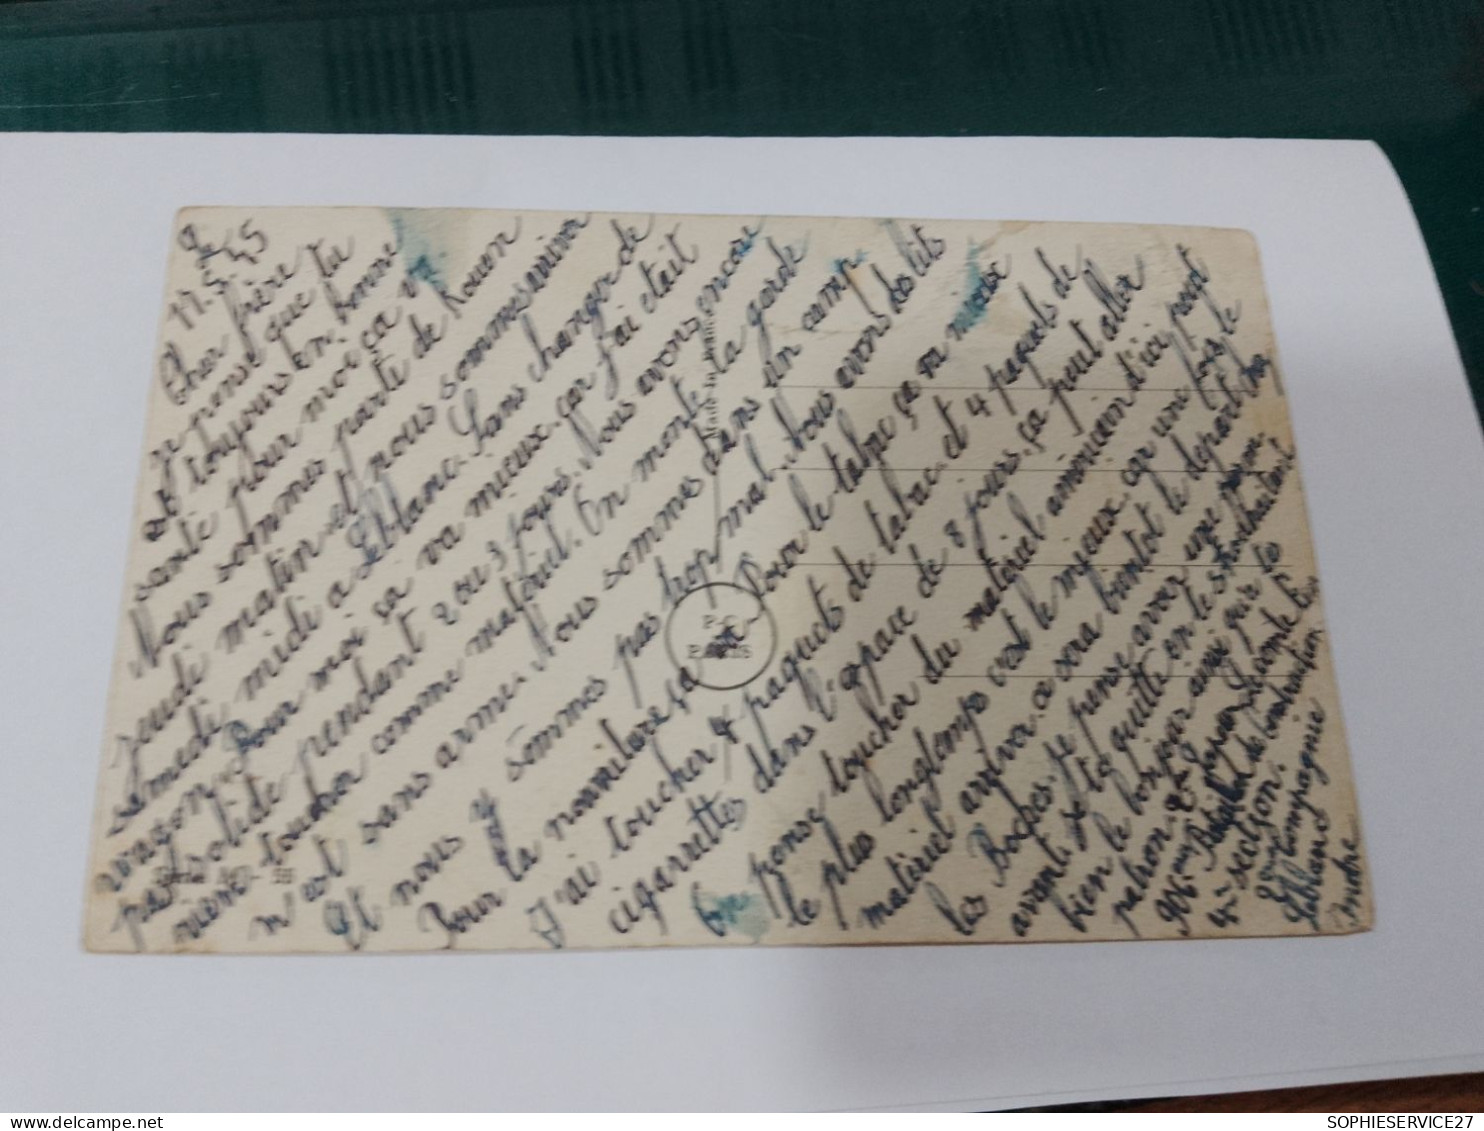 Le
17.5.45
Cher frère
je pense que tu
est toujours en bonne
santé pour moi ça va
Nous sommes parti de Rouen
jeudi matin et nous sommes arriver
samedi midi a Leblanc. Sans changer de
wagon. Pour moi ça va mieux. car j'ai était
pas solide pendant 2 ou 3 jours. Nous avons encore
rien toucher comme matériel. On monte la garde
n'est sans arme. Nous sommes dans un camp
et nous y sommes pas trop mal. Nous avons des lits
Pour la nourriture ça va. Pour le tabac ça va mieux
J'ai toucher 4 paquets de tabac et 4 paquets de
cigarettes dans l'espace de 8 jours. ça peut aller
On pense toucher du matériel américain d'ici peut
le plus longtemps c'est le mieux car une fois le
matériel arriver ce sera bientot le départ chez
les Boches. Je pense avoir une perm.
avant. Je te quitte en te souhaitant
bien le bonjour ainsi que le
patron.
Lecomte
Bataillon
4e section. de Construction
2eme Compagnie
Leblanc
Indre
Made in
P-C
PARIS
SOPHIESERVICE27